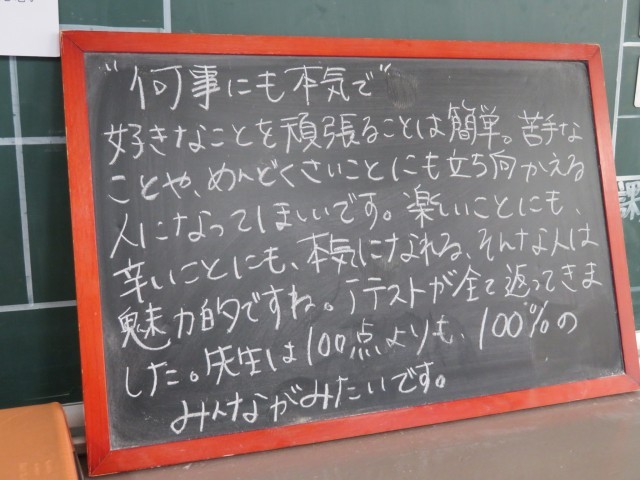 "何事にも本気で"
好きなことを頑張ることは簡単。苦手な
ことや、めんどくさいことにも立ち向かえる
人になってほしいです。楽しいことにも、
辛いことにも、本気になれる、そんな人は
魅力的ですね。テストが全て返ってきま
した。先生は100点よりも、100%の
みんながみたいです。